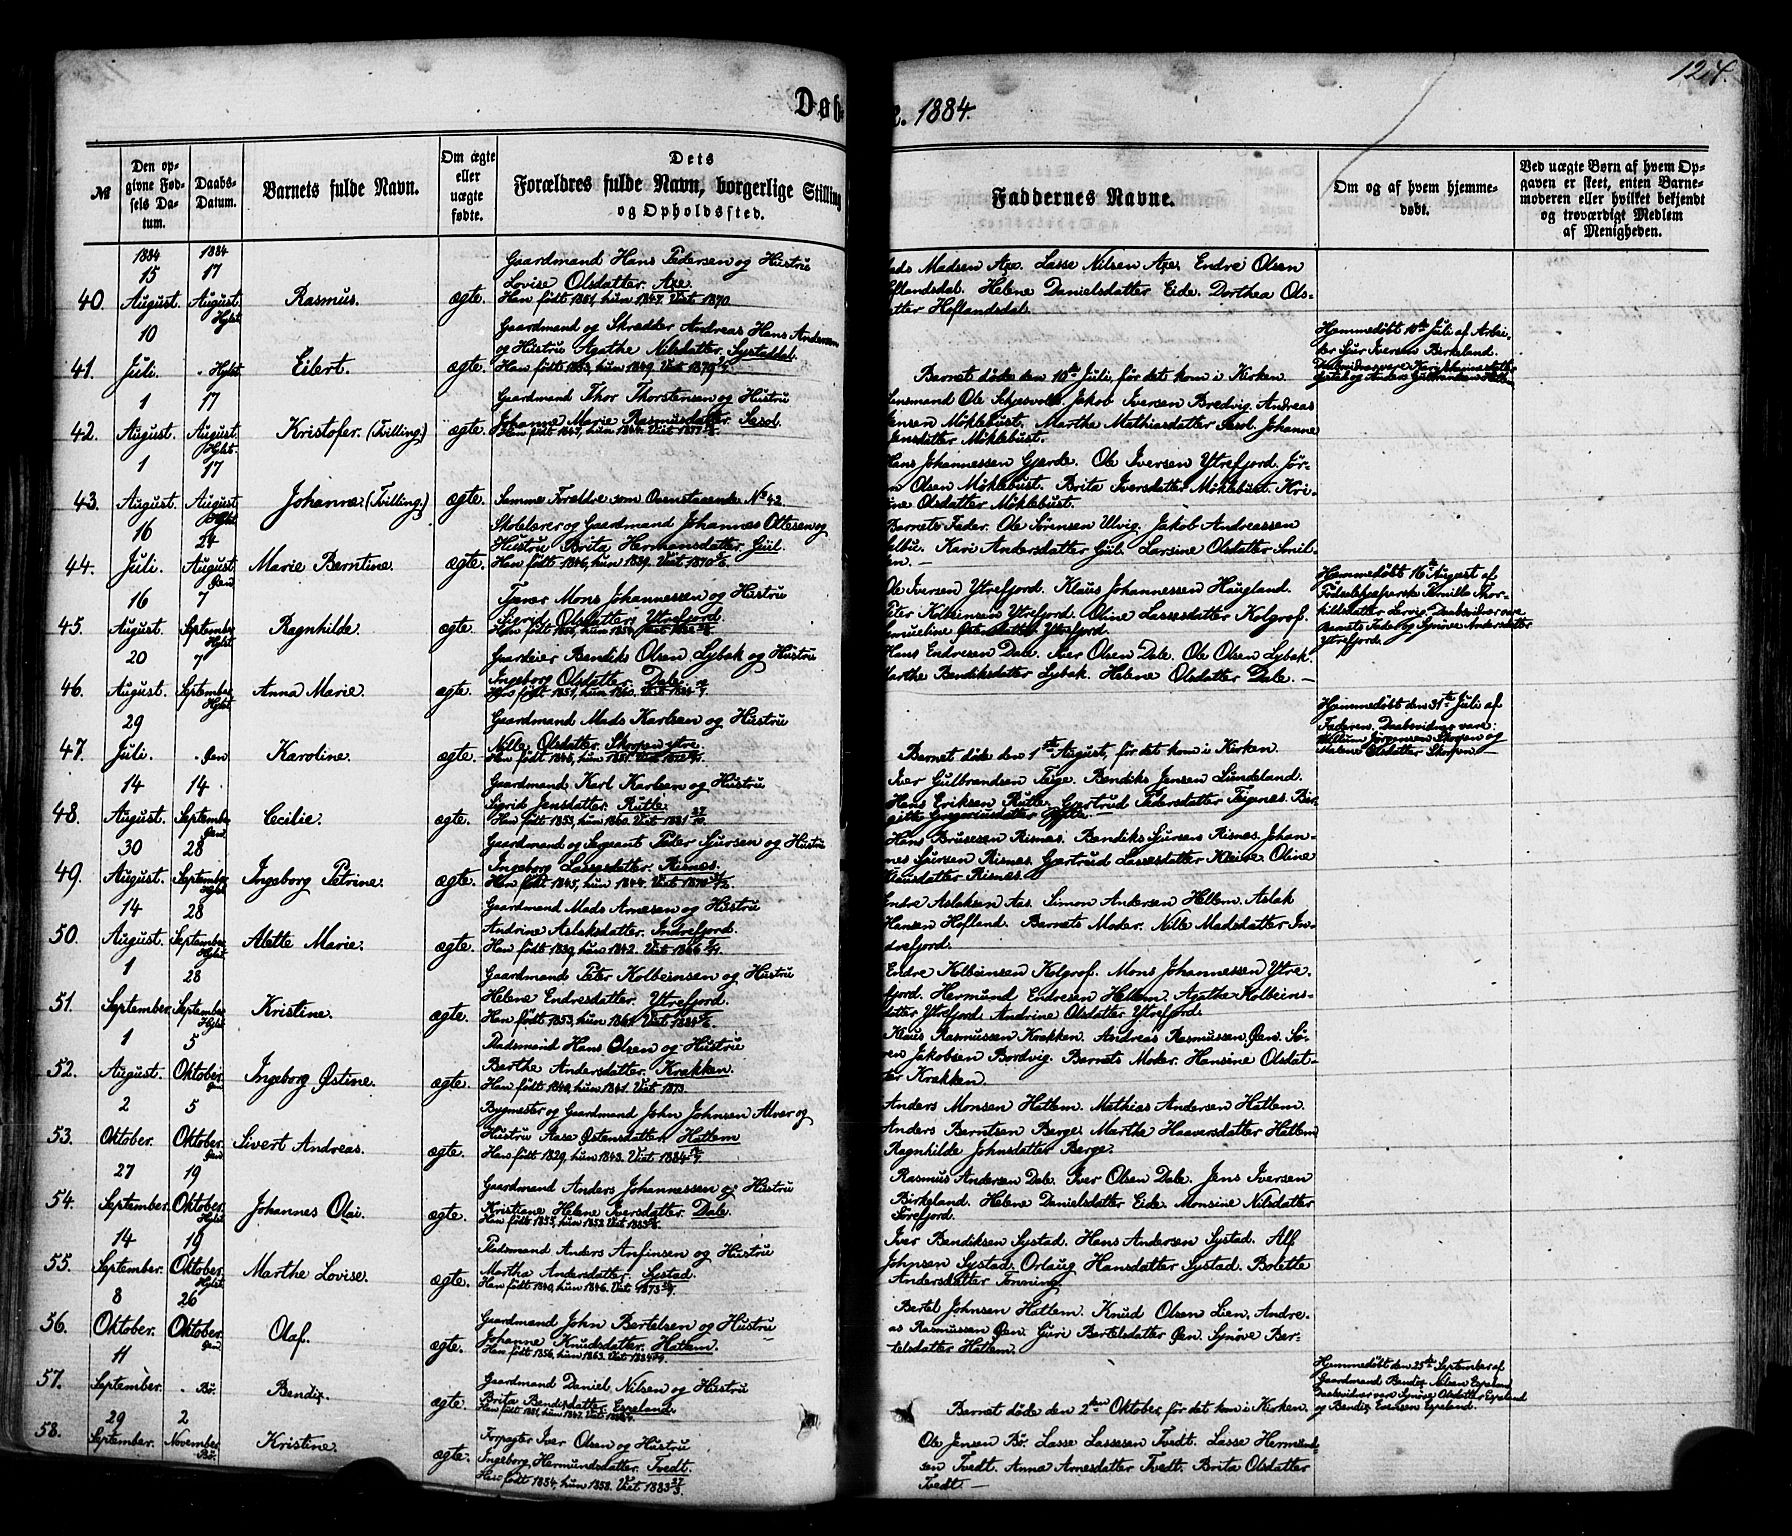 124.
Døb
1884.
№
Den opgivne Fødsels Datum.
Daabs-Datum.
Barnets fulde Navn.
Om ægte eller uægte fødte.
Dets Forældres fulde Navn, borgerlige Stilling og Opholdssted.
Faddernes Navne.
Om og af hvem hjemmedøbt.
Ved uægte Børn af hvem Opgaven er skeet, enten Barnemoderen eller hvilket bekjendt og troværdigt Medlem af Menigheden.
1884 1884
15 17
40. August. August. Hylst. Rasmus. ægte.
Gaardmand Hans Pedersen og Hustru
Lovise Olsdatter. Axe.
Mads Madsen Axe. Lasse Nilsen Axe. Endre Olsen
Hoflandsdal. Helene Danielsdatter Eide. Dorthea Ols-
Hoflandsdal.
10
41. Juli. Hylst. Eilert. ægte.
Gaardmand og Skrædder Andreas Hans Andersen
og Hustru Agathe Nilsdatter. Systaddal.
Barnet døde den 10de Juli, før det kom i Kirken.
Hjemmedøbt 10de Juli af Arbei-
der Sjur Iversen Birkeland.
1 17
42. August. August. Hylst. Kristofer. (Tvilling.) ægte.
Gaardmand Thor Thorstensen og Hustru
Johanne Marie Rasmusdatter. Sesol.
Jakob Iversen Bredvig. Andreas
Jensen Møklebust. Marthe Mathiasdatter Sesol. Johanne
Jensdatter Møklebust.
1 17
43. August. August. Hylst. Johanne. (Tvilling.) ægte.
Samme Forældre som Ovenstaaende No 42.
Hans Johannessen Gjerde. Ole Iversen Ytrefjord. Jør-
Olsen Møklebust. Brita Iversdatter Møklebust. Kri-
Olsdatter Møklebust.
16 24
44. Juli. August. Marie Berntine. ægte.
Skolelærer og Gaardmand Johannes Ottesen og
Hustru Brita Hermansdatter. Gül.
Han født 1846, hun 1839.
Barnets Fader. Ole Sørensen Ulvig. Jakob Andreassen
Kari Andersdatter Gül. Larsine Olsdatter Smil-
16 7
45. August. September. Hylst. Ragnhilde. ægte.
Mons Johannessen og Hustru
Sigrid Olsdatter. Ytrefjord.
Ole Iversen Ytrefjord. Klaus Johannessen Haugland.
Peter Kolbeinsen Ytrefjord. Oline Lassesdatter Kolgrof.
Ytrefjord.
Hjemmedøbt 16de August af
Pernille Thor-
kildsdatter Barnets Fader og Synøve Andersdatter
Ytrefjord.
20 7
46. August. September. Hylst. Anna Marie. ægte.
Gaardeier Bendiks Olsen Lybak og Hustru
Ingeborg Olsdatter. Dale.
Hans Endresen Dale. Iver Olsen Dale. Ole Olsen Lybak.
Marthe Bendiksdatter Lybak. Helene Olsdatter Dale.
29
47. Juli. Øen Karoline. ægte.
Gaardmand Mads Karlsen og Hustru
Nille Olsdatter. Skorpen ytre.
Barnet døde den 1ste August, før det kom i Kirken.
Hjemmedøbt den 31te Juli af
Faderen. Daabsvidner vare:
Jørgensen Skorpen og
Helene Olsdatter Skorpen.
14 14
48. August. September. Øen Cecilie. ægte.
Gaardmand Karl Karlsen og Hustru
Sigrid Jensdatter. Rutle.
Han født 1853, hun 1860. Viet 1881
Iver Gulbrandsen Teige. Bendiks Jensen Lundeland.
Hans Eriksen Rutle. Gjertrud Pedersdatter Teignes. Bir-
gitte Gregoriusdatter Rutle.
30 28
49. August. September. Hylst. Ingeborg Petrine. ægte.
Gaardmand og Sergeant Peter Sjursen og Hustru
Ingeborg Lassesdatter. Risnes.
Han født 1845, hun 1844. Viet 1870
Hans Brusesen Risnes. Bendiks Sjursen Risnes. Johan-
nes Sjursen Risnes. Gjertrud Lassesdatter Kleive. Oline
Klausdatter Risnes.
14 28
50. August. September. Hylst. Alette Marie. ægte.
Gaardmand Mads Arnesen og Hustru
Andrine Aslaksdatter. Indrefjord.
Han født 1839, hun 1842. Viet 1866
Endre Aslaksen Aas. Simon Andersen Hellem. Aslak
Hansen Hofland. Barnets Moder. Nille Madsdatter In-
drefjord.
1 28
51. September. September. Hylst. Kristine. ægte.
Gaardmand Peter Kolbeinsen og Hustru
Helene Endresdatter. Ytrefjord.
Han født 1853, hun 1861. Viet 1884
Endre Kolbeinsen Kolgrof. Mons Johannessen Ytre-
fjord. Hermund Endresen Hellem. Agathe Kolbeins-
datter Ytrefjord. Andrine Olsdatter Ytrefjord.
1 5
52. August. Oktober. Øen Ingeborg Østine. ægte.
Pladsmand Hans Olsen og Hustru
Berthe Andersdatter. Krakken.
Han født 1840, hun 1841. Viet 1873.
Klaus Rasmussen Krakken. Andreas Rasmussen Øen. Sø-
ren Jakobsen Bordvig. Barnets Moder. Hansine Olsdat-
ter Krakken.
2 5
53. Oktober. Oktober. Øen Sivert Andreas. ægte.
Bygmester og Gaardmand John Johnsen Alver og
Hustru Aase Østensdatter. Hatlem
Han født 1829, hun 1843. Viet 1864
Anders Monsen Hatlem. Mathias Andersen Hatlem.
Anders Berntsen Berge. Marthe Haaversdatter Hatlem
Ragnhilde Johnsdatter Berge.
27 19
54. September. Oktober. Hylst. Johannes Olai. ægte.
Gaardmand Anders Johannessen og Hustru
Kristiane Helene Iversdatter. Dale.
Rasmus Andersen Dale. Iver Olsen Dale. Jens Iversen
Birkeland. Helene Danielsdatter Eide. Monsine Nilsdatter
Sørefjord.
14 19
55. September. Oktober. Hylst. Marthe Lovise. ægte.
Pladsmand Anders Anfinsen og Hustru
Martha Andersdatter. Systad.
Han født 1840, hun 1846. Viet 1873
Iver Bendiksen Systad. Hans Andersen Systad. Alf
Johnsen Systad. Orlaug Hansdatter Systad. Bolette
Andersdatter Tonning.
8 26
56. Oktober. Oktober. Øen Olaf. ægte.
Gaardmand John Bertelsen og Hustru
Johanne Knudsdatter. Hatlem.
Han født 1856, hun 1863. Viet 1884
Bertel Johnsen Hatlem. Knud Olsen Lien. Andre-
as Rasmussen Øen. Guri Bertelsdatter Øen. Synøve Ber-
telsdatter Hatlem.
11
57. September. Bø. Bendix. ægte.
Gaardmand Daniel Nilsen og Hustru
Brita Bendixdatter. Espeland.
Barnet døde den 2den Oktober, før det kom i Kirken.
Hjemmedøbt den 25de September af
Gaardmand Bendix Nilsen Espeland
Daabsvidner vare Synøve Olsdatter Espeland
og Bendix Evensen Espeland.
29 2
58. September. November. Bø. Kristine. ægte.
Forpagter Iver Olsen og Hustru
Ingeborg Hermundsdatter. Tvedt.
Han født 1854, hun 1858. Viet 1883
Ole Jensen Bø. Lasse Lassesen Tvedt. Lasse Hermund-
sen Tvedt. Anna Arnesdatter Tvedt. Brita Olsdatter
Tvedt.